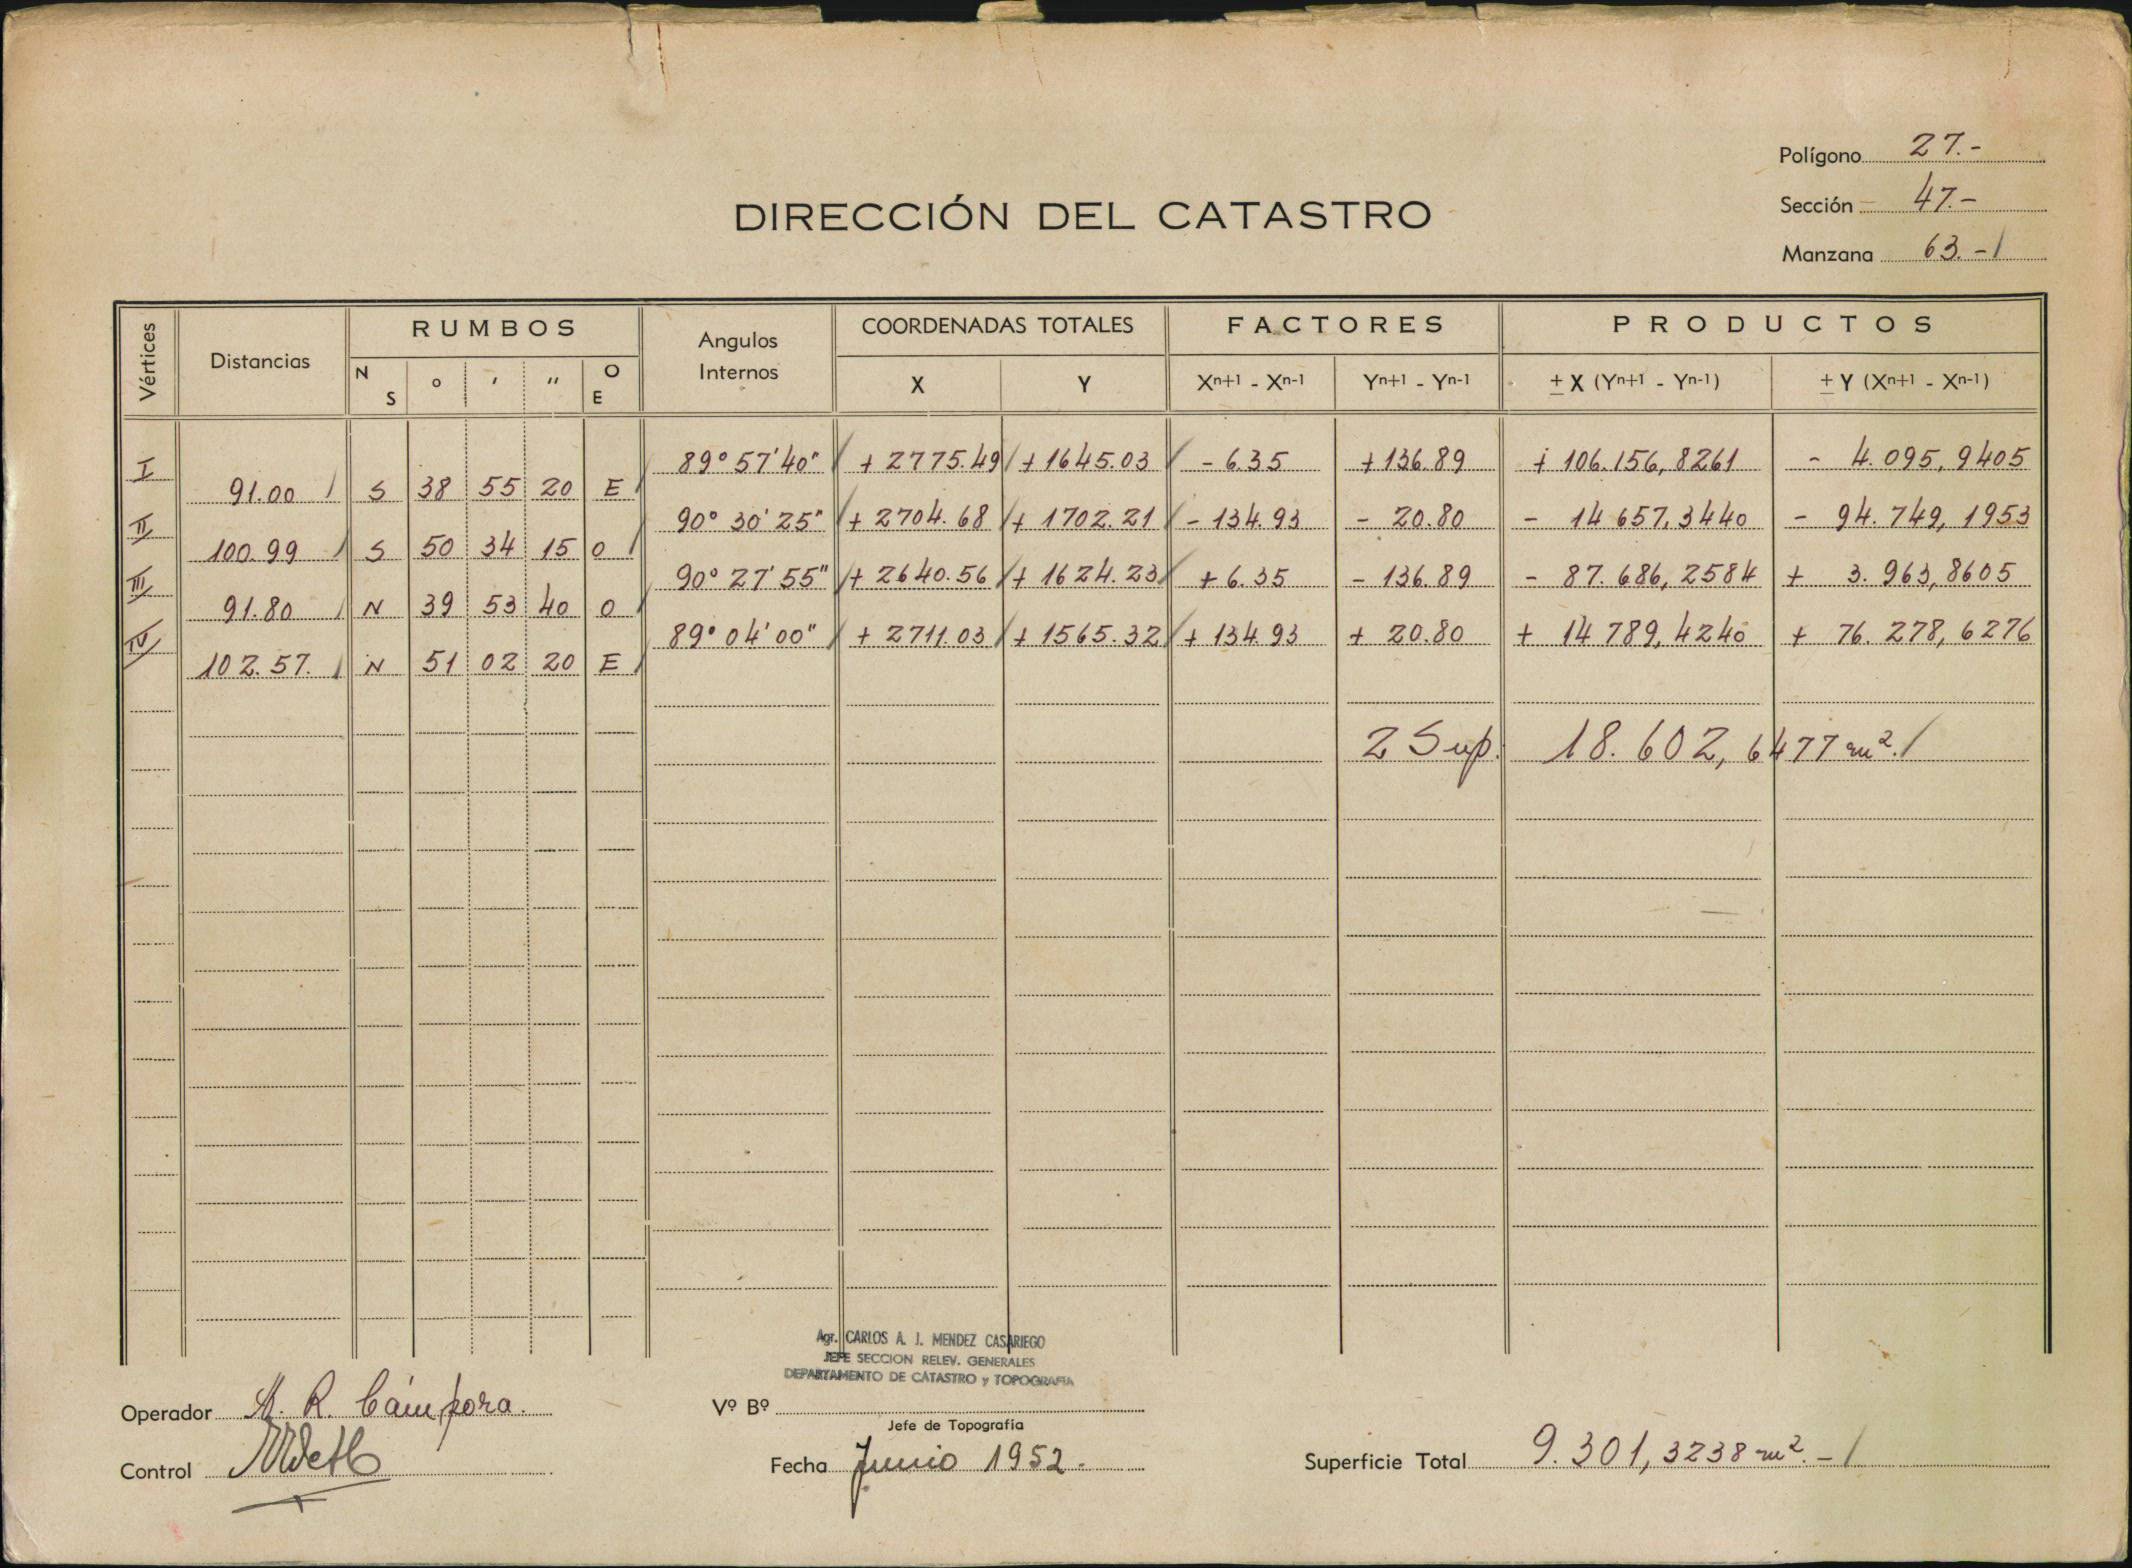 Polígono 27.-
Sección 47.-
Manzana 63.-/
DIRECCIÓN DEL CATASTRO
Vértices Distancias RUMBOS Angulos Internos COORDENADAS TOTALES FACTORES PRODUCTOS
N S o ' " O E X Y Xn+1 - Xn-1 Yn+1 - Yn-1 ± X (Yn+1 - Yn-1) ± Y (Xn+1 - Xn-1)
I 89° 57' 40" + 2775.49 + 1645.03 - 6.35 + 136.89 + 106.156,8261 - 4.095,9405
91.00 S 38 55 20 E
II 90° 30' 25" + 2704.68 + 1702.21 - 134.93 - 20.80 - 14 657,3440 - 94.749,1953
100.99 S 50 34 15 O
III 90° 27' 55" + 2640.56 + 1624.23 + 6.35 - 136.89 - 87.686,2584 + 3.963,8605
91.80 N 39 53 40 O
IV 89° 04' 00" + 2711.03 + 1565.32 + 134.93 + 20.80 + 14 789,4240 + 76.278,6276
102.57. N 51 02 20 E
2 Sup. 18.602,6477 m².
Agr. CARLOS A. J. MENDEZ CASARIEGO
JEFE SECCION RELEV. GENERALES
DEPARTAMENTO DE CATASTRO y TOPOGRAFIA
Operador R. Cámpora.
Vº Bº
Jefe de Topografía
Control
Fecha Junio 1952.
Superficie Total 9.301,3238 m².-/